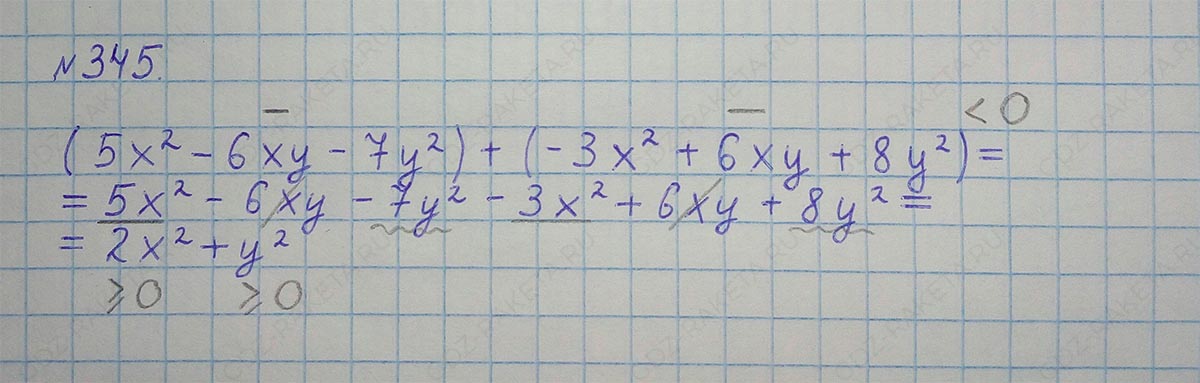 №345.
− − < 0
(5x² − 6xy − 7y²) + (−3x² + 6xy + 8y²) =
= 5x² − 6xy − 7y² − 3x² + 6xy + 8y² =
= 2x² + y²
⩾0 ⩾0